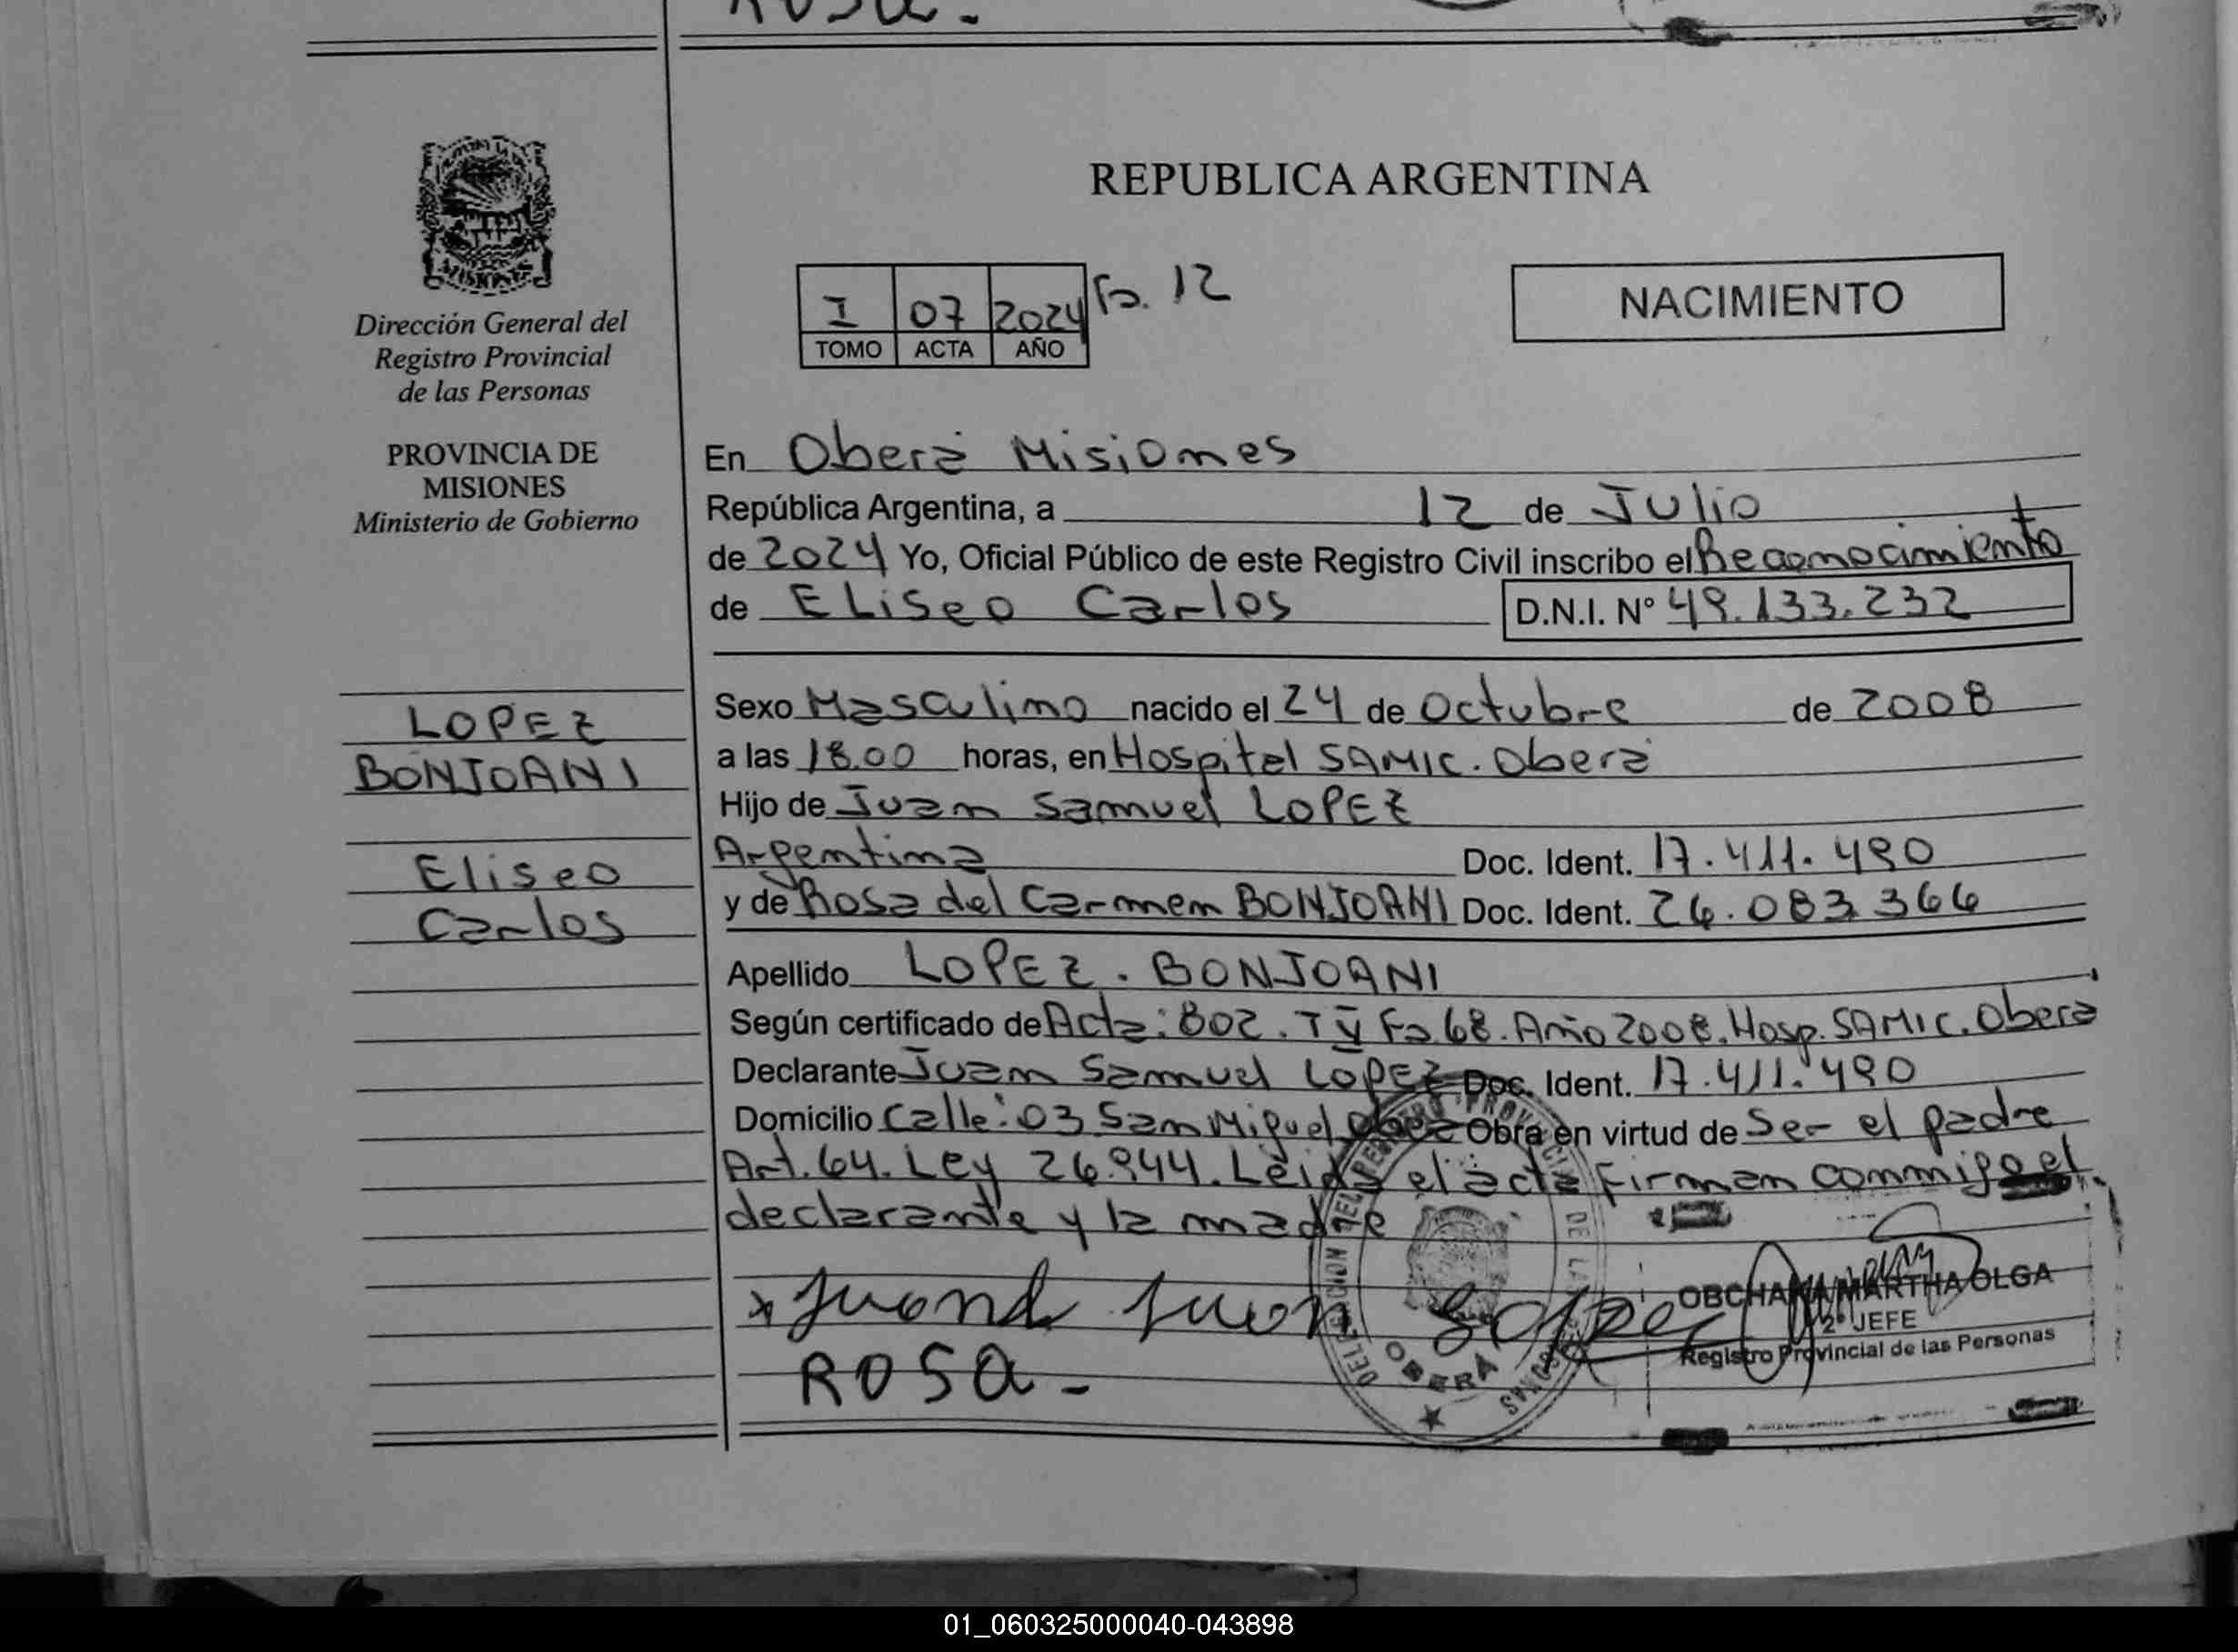 ROSA.-
Dirección General del
Registro Provincial
de las Personas
PROVINCIA DE
MISIONES
Ministerio de Gobierno
LOPEZ
BONJOANI
Eliseo
Carlos
REPUBLICA ARGENTINA
I 07 2024 Fo. 12
TOMO ACTA AÑO
NACIMIENTO
En Oberá Misiones
República Argentina, a 12 de Julio
de 2024 Yo, Oficial Público de este Registro Civil inscribo el Reconocimiento
de ELiseo Carlos D.N.I. N° 49.133.232
Sexo Masculino nacido el 24 de Octubre de 2008
a las 18.00 horas, en Hospital SAMIC. Oberá
Hijo de Juan Samuel LOPEZ
Argentina Doc. Ident. 17.411.490
y de Rosa del Carmen BONJOANI Doc. Ident. 26.083.366
Apellido LOPEZ . BONJOANI
Según certificado de Acta: 802. T V Fo 68. Año 2008. Hosp. SAMIC. Oberá
Declarante Juan Samuel LOPEZ Doc. Ident. 17.411.490
Domicilio Calle: 03 San Miguel Oberá Obra en virtud de Ser el padre
Art. 64. Ley 26.944. Leida el acta Firman conmigo el
declarante y la madre
Juan Lopez
ROSA.-
DELEGACION DEL REGISTRO PROVINCIAL DE LAS PERSONAS
OBERA
OBCHANA MARTHA OLGA
2° JEFE
Registro Provincial de las Personas
01_060325000040-043898